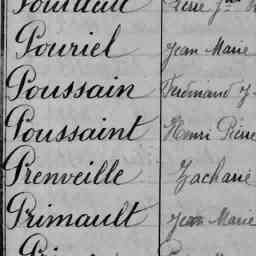 Pouriel Jean Marie
Poussain Ferdinand J
Poussaint Henri Pierre
Prenveille Zacharie
Primault Jean Marie